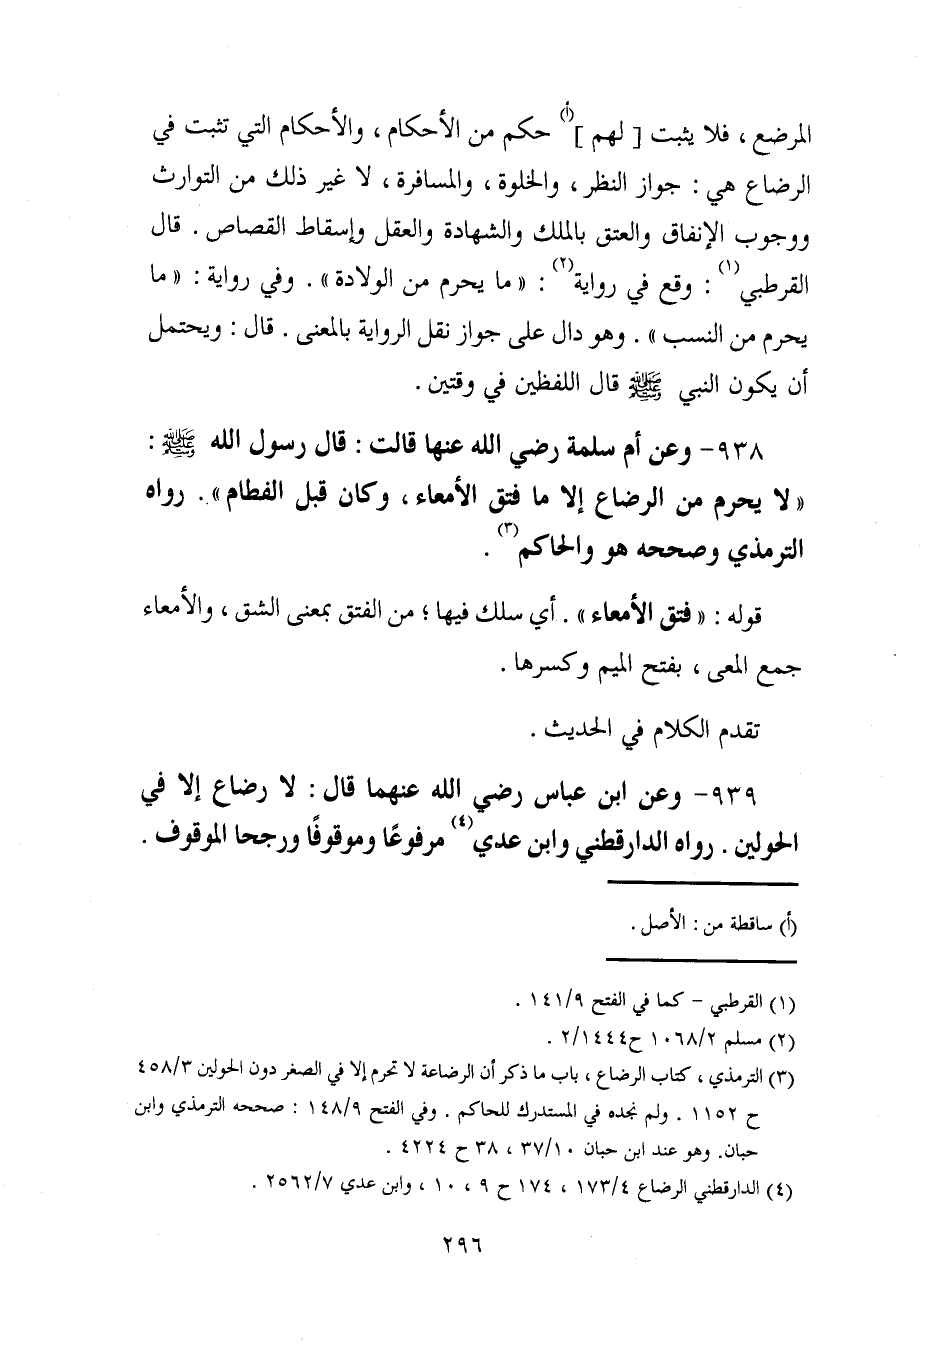 المرضع ، فلا يثبت [ لهم ](أ) حكم من الأحكام ، والأحكام التي تثبت في
الرضاع هي : جواز النظر ، والخلوة ، والمسافرة ، لا غير ذلك من التوارث
ووجوب الإنفاق والعتق بالملك والشهادة والعقل وإسقاط القصاص . قال
القرطبي(١) : وقع في رواية(٢) : « ما يحرم من الولادة » . وفي رواية : « ما
يحرم من النسب » . وهو دال على جواز نقل الرواية بالمعنى . قال : ويحتمل
أن يكون النبي ﷺ قال اللفظين في وقتين .
٩٣٨- وعن أم سلمة رضي الله عنها قالت : قال رسول الله ﷺ :
« لا يحرم من الرضاع إلا ما فتق الأمعاء ، وكان قبل الفطام » . رواه
الترمذي وصححه هو والحاكم(٣) .
قوله : « فتق الأمعاء » . أي سلك فيها ؛ من الفتق بمعنى الشق ، والأمعاء
جمع المعى ، بفتح الميم وكسرها .
تقدم الكلام في الحديث .
٩٣٩- وعن ابن عباس رضي الله عنهما قال : لا رضاع إلا في
الحولين . رواه الدارقطني وابن عدي(٤) مرفوعًا وموقوفًا ورجحا الموقوف .
(أ) ساقطة من : الأصل .
(١) القرطبي - كما في الفتح ١٤١/٩ .
(٢) مسلم ١٠٦٨/٢ ح٢/١٤٤٤ .
(٣) الترمذي ، كتاب الرضاع ، باب ما ذكر أن الرضاعة لا تحرم إلا في الصغر دون الحولين ٤٥٨/٣
ح ١١٥٢ . ولم نجده في المستدرك للحاكم . وفي الفتح ١٤٨/٩ : صححه الترمذي وابن
حبان. وهو عند ابن حبان ٣٧/١٠ ، ٣٨ ح ٤٢٢٤ .
(٤) الدارقطني الرضاع ١٧٣/٤ ، ١٧٤ ح ٩ ، ١٠ ، وابن عدي ٢٥٦٢/٧ .
٢٩٦